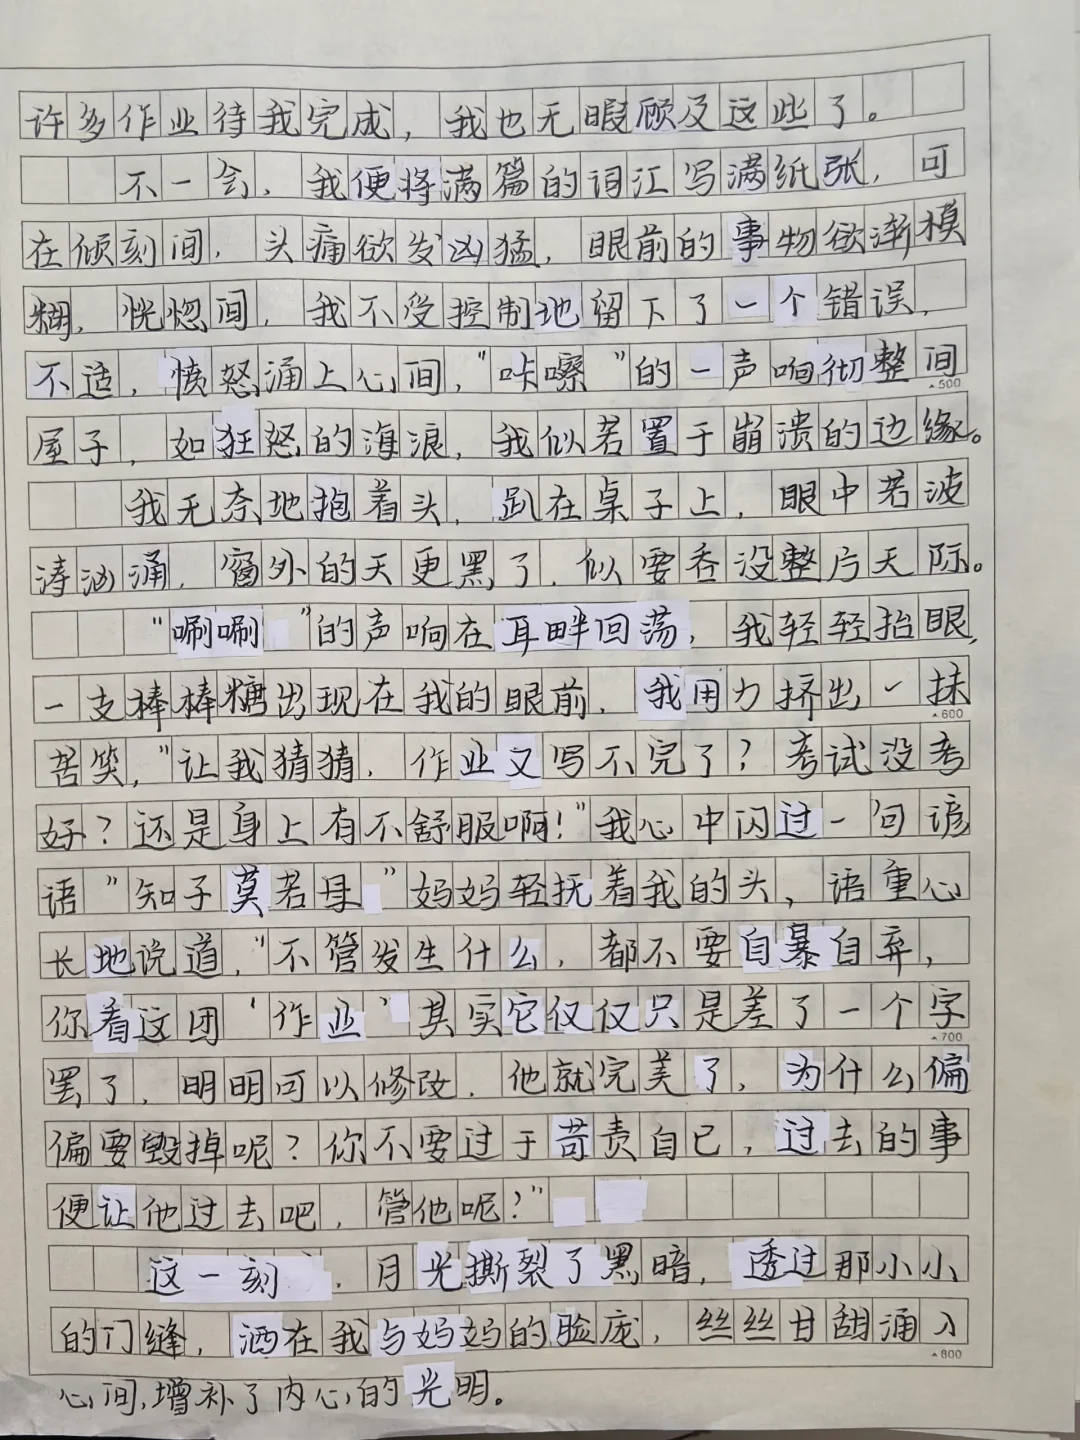 许多作业待我完成，我也无暇顾及这些了。
不一会，我便将满篇的词汇写满纸张，可
在倾刻间，头痛欲发凶猛，眼前的事物欲渐模
糊，恍惚间，我不受控制地留下了一个错误，
不适，愤怒涌上心间，"咔嚓"的一声响彻整间
▲500
屋子，如狂怒的海浪，我似若置于崩溃的边缘。
我无奈地抱着头，趴在桌子上，眼中若波
涛汹涌，窗外的天更黑了，似要吞没整片天际。
"唰唰"的声响在耳畔回荡，我轻轻抬眼，
一支棒棒糖出现在我的眼前，我用力挤出一抹
▲600
苦笑，"让我猜猜，作业又写不完了？考试没考
好？还是身上有不舒服啊！"我心中闪过一句谚
语"知子莫若母"妈妈轻抚着我的头，语重心
长地说道，"不管发生什么，都不要自暴自弃，
你看这团'作业'其实它仅仅只是差了一个字
▲700
罢了，明明可以修改，他就完美了，为什么偏
偏要毁掉呢？你不要过于苛责自己，过去的事
便让他过去吧，管他呢？"
这一刻，月光撕裂了黑暗，透过那小小
的门缝，洒在我与妈妈的脸庞，丝丝甘甜涌入
▲800
心间，增补了内心的光明。